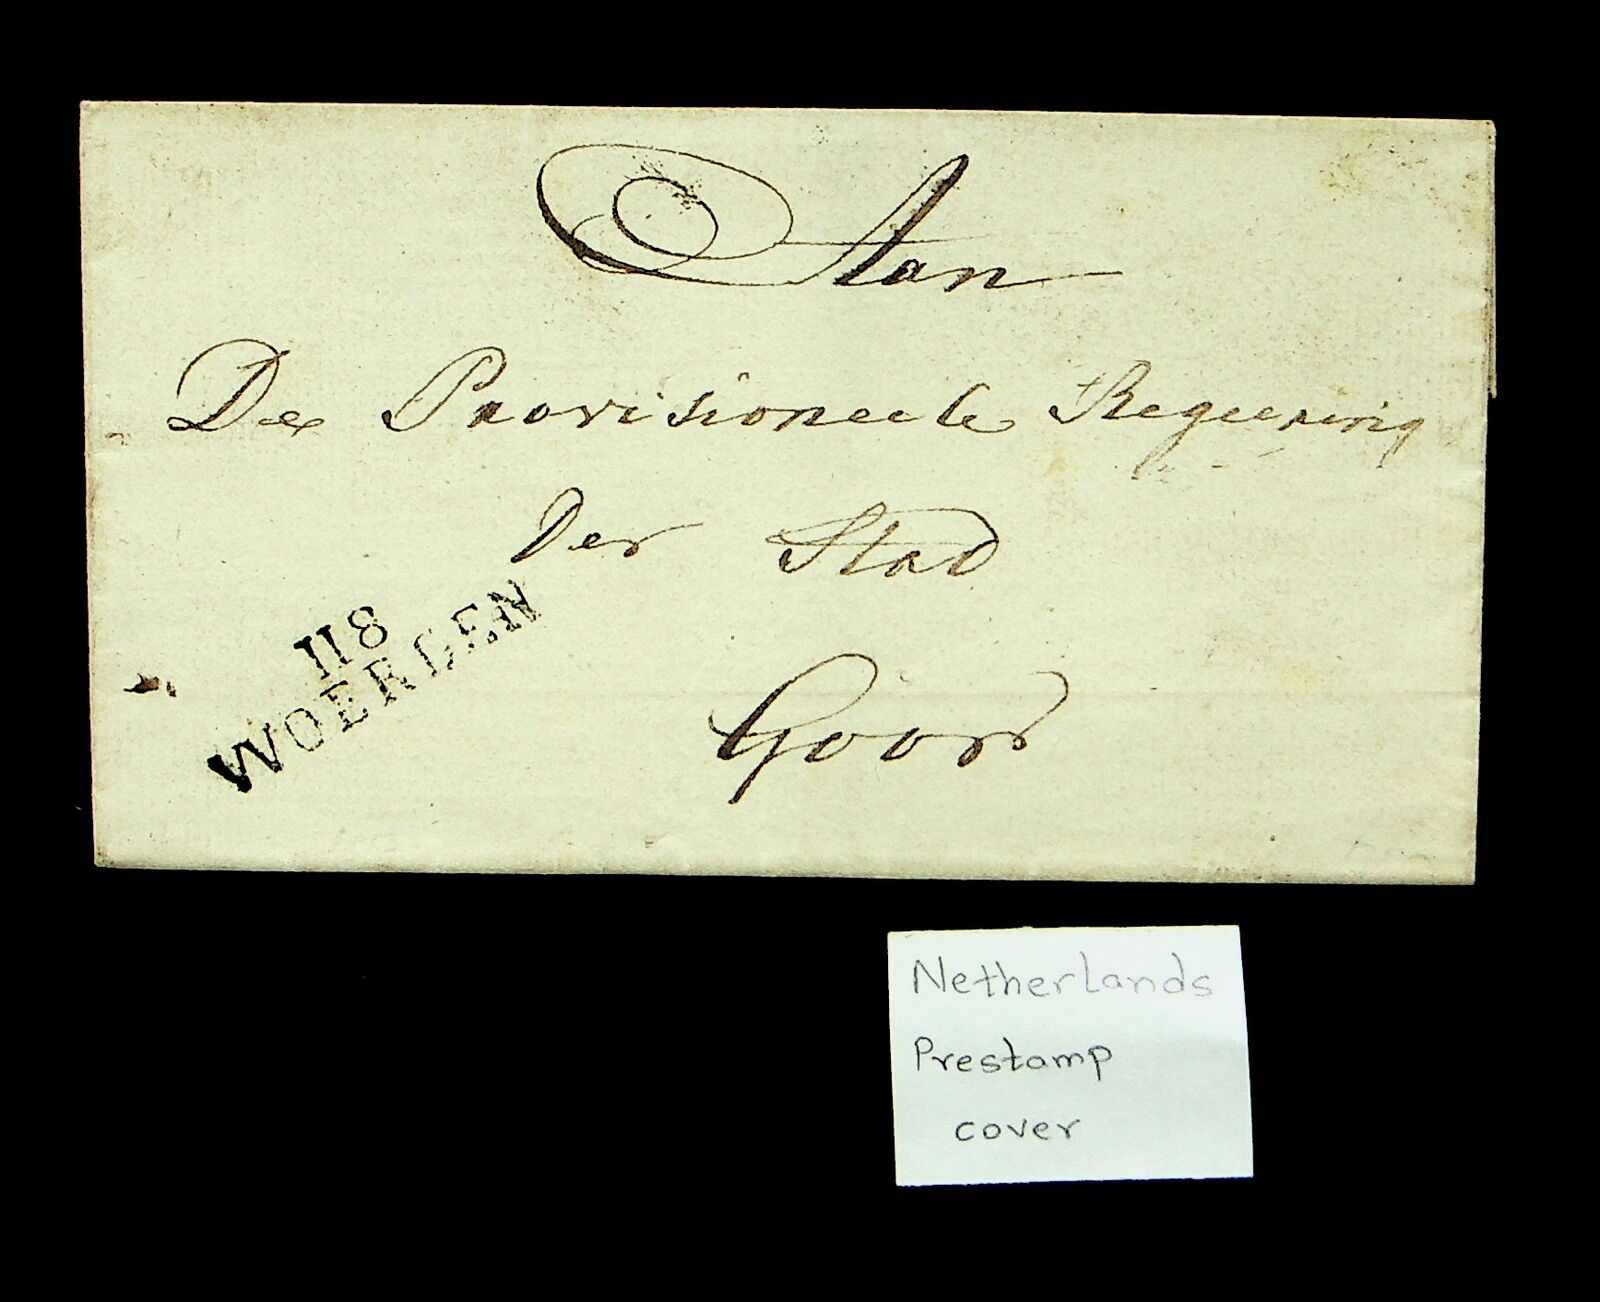 Aan
De Provisioneele Regeering
Der Stad
118
WOERDEN
Goor
Netherlands
Prestamp
cover